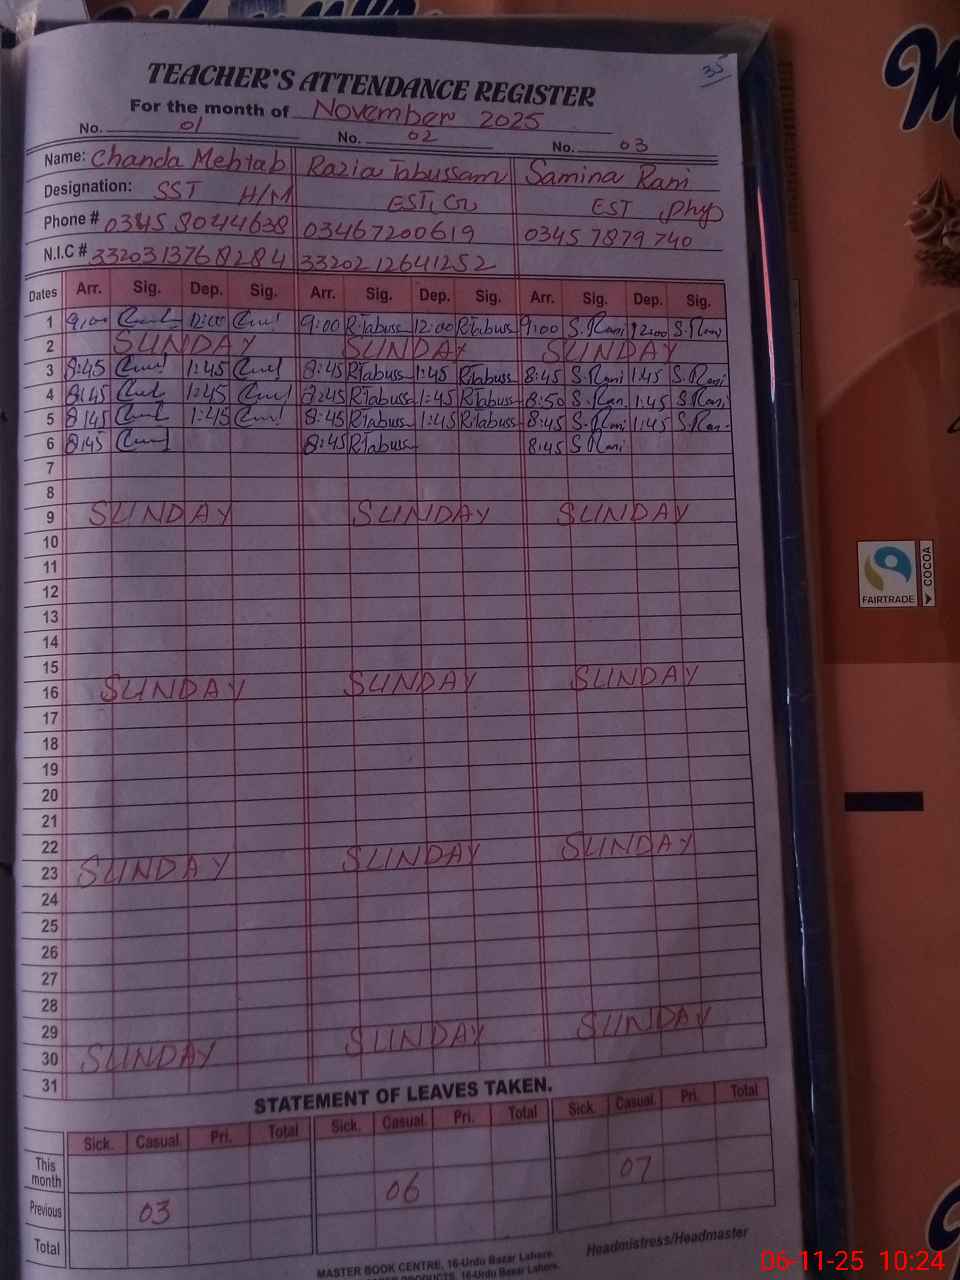 35
TEACHER'S ATTENDANCE REGISTER
For the month of November 2025
No. 01 No. 02 No. 03
Name: Chanda Mehtab Razia Tabussam Samina Rani
Designation: SST H/M EST, Gr EST Phy
Phone # 0345 8044638 03467200619 0345 7879 740
N.I.C # 3320313768284 3320212641252
Dates Arr. Sig. Dep. Sig. Arr. Sig. Dep. Sig. Arr. Sig. Dep. Sig.
1 9:00 12:00 9:00 R.Tabuss 12:00 R.Tabuss 9:00 S.Rani 12:00 S.Rani
2 SUNDAY SUNDAY SUNDAY
3 8:45 1:45 8:45 R.Tabuss 1:45 R.Tabuss 8:45 S.Rani 1:45 S.Rani
4 8:45 1:45 8:45 R.Tabuss 1:45 R.Tabuss 8:50 S.Ran 1:45 S.Rani
5 8:45 1:45 8:45 R.Tabuss 1:45 R.Tabuss 8:45 S.Rani 1:45 S.Ran
6 8:45 8:45 R.Tabuss 8:45 S.Rani
7
8
9 SUNDAY SUNDAY SUNDAY
10
11
12
13
14
15
16 SUNDAY SUNDAY SUNDAY
17
18
19
20
21
22
23 SUNDAY SUNDAY SUNDAY
24
25
26
27
28
29
30 SUNDAY SUNDAY SUNDAY
31
STATEMENT OF LEAVES TAKEN.
Sick. Casual. Pri. Total Sick. Casual. Pri. Total Sick. Casual. Pri. Total
This month
Previous 03 06 07
Total
Headmistress/Headmaster
MASTER BOOK CENTRE, 16-Urdu Bazar Lahore.
PRODUCTS, 16-Urdu Bazar Lahore.
FAIRTRADE
COCOA
06-11-25 10:24